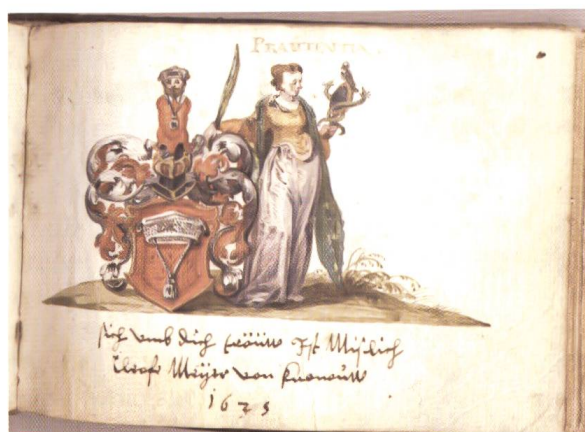 PRAUTENTIA
sich vmb dich tröüw Ist Mislich
Meyer von Knonouw
1625